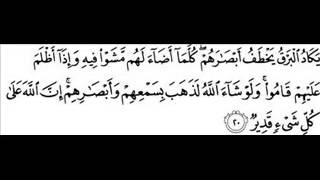 يَكَادُ ٱلۡبَرۡقُ يَخۡطَفُ أَبۡصَٰرَهُمۡۖ كُلَّمَآ أَضَآءَ لَهُم مَّشَوۡاْ فِيهِ وَإِذَآ أَظۡلَمَ
عَلَيۡهِمۡ قَامُواْۚ وَلَوۡ شَآءَ ٱللَّهُ لَذَهَبَ بِسَمۡعِهِمۡ وَأَبۡصَٰرِهِمۡۚ إِنَّ ٱللَّهَ عَلَىٰ
كُلِّ شَيۡءٖ قَدِيرٞ ٢٠